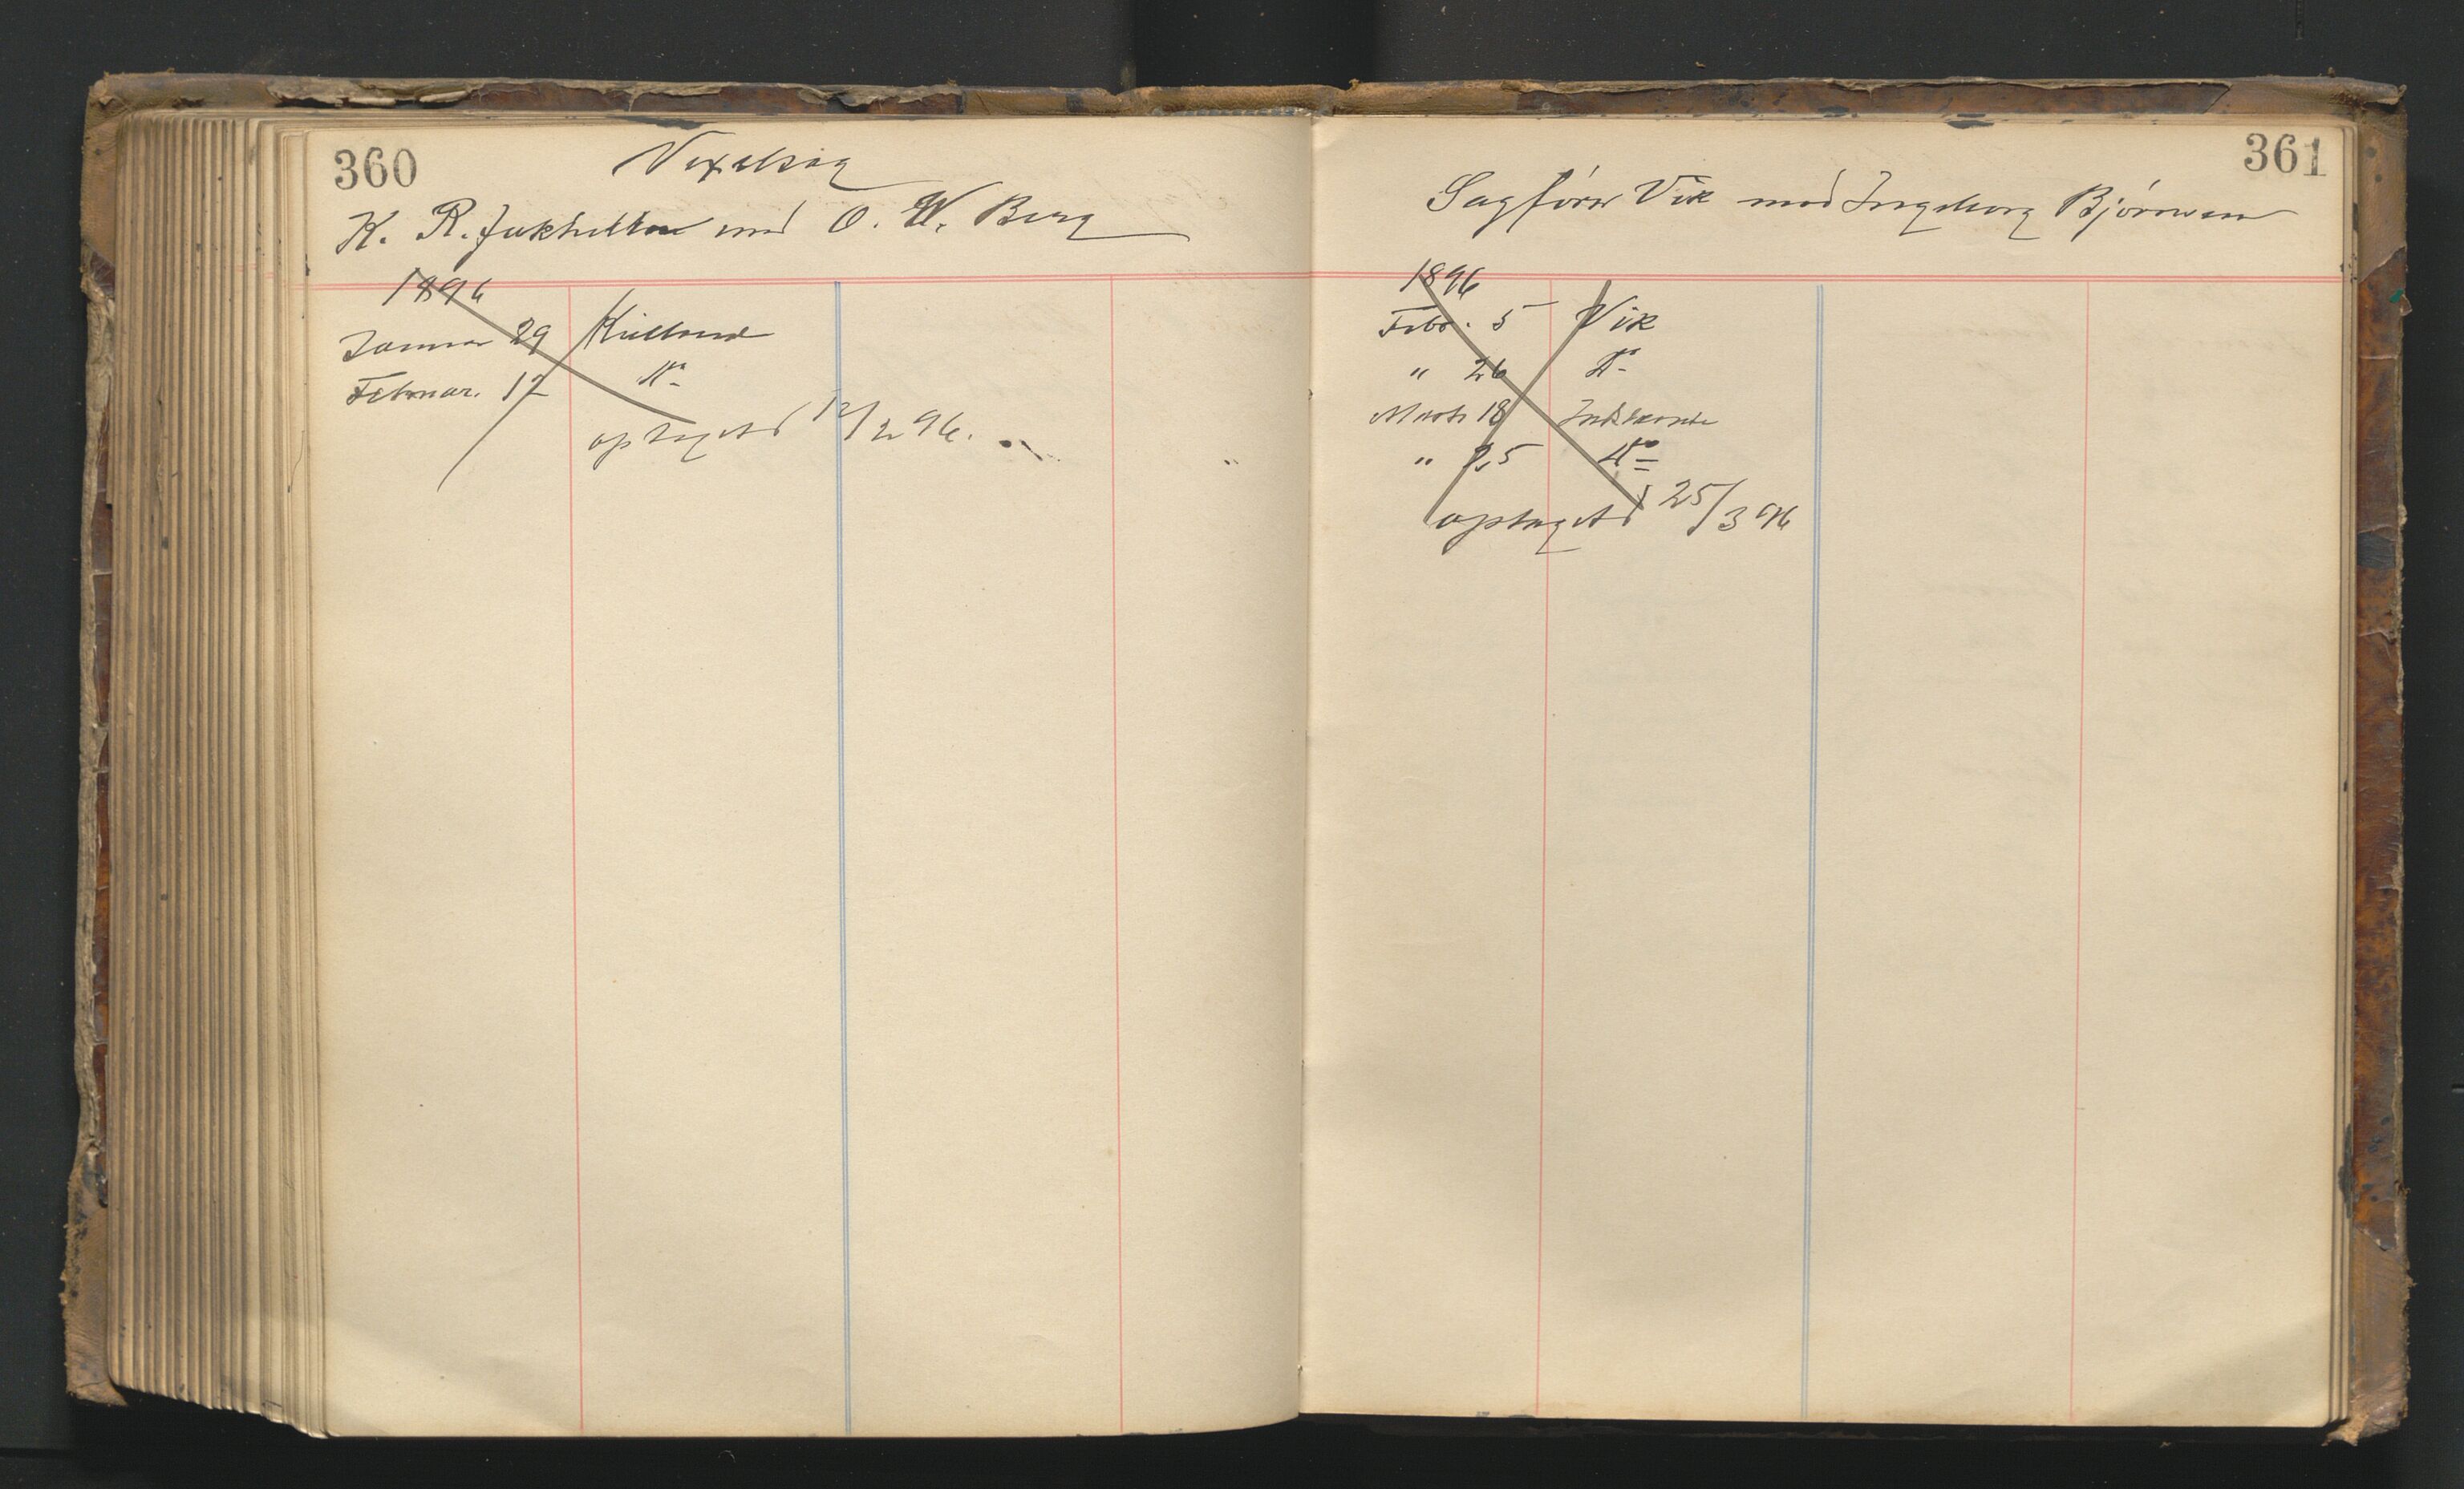 360
Vexelsag
K. R. Jakhelln mod O. W. Berg
1896
Januar 29 Kielland
Februar. 12 do
optaget 12/2 96.
361
Sagfører Vik mod Ingeborg Bjørnsen
1896
Febr. 5 Vik
" 26 do
Marts 18
" 25 do
optaget 25/3 96